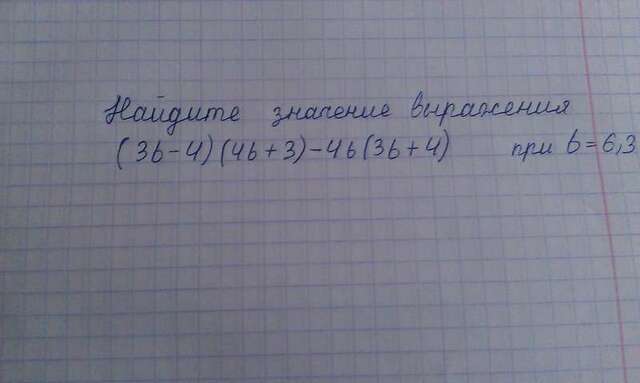 Найдите значение выражения
(3b-4)(4b+3)-4b(3b+4) при b=6,3